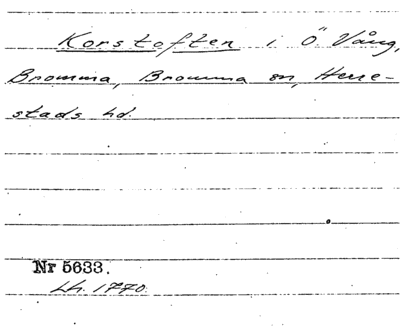 Korstoften i Ö Vång,
Bromma, Bromma sn, Herre-
stads hd.
Nr 5633.
Lh. 1770.